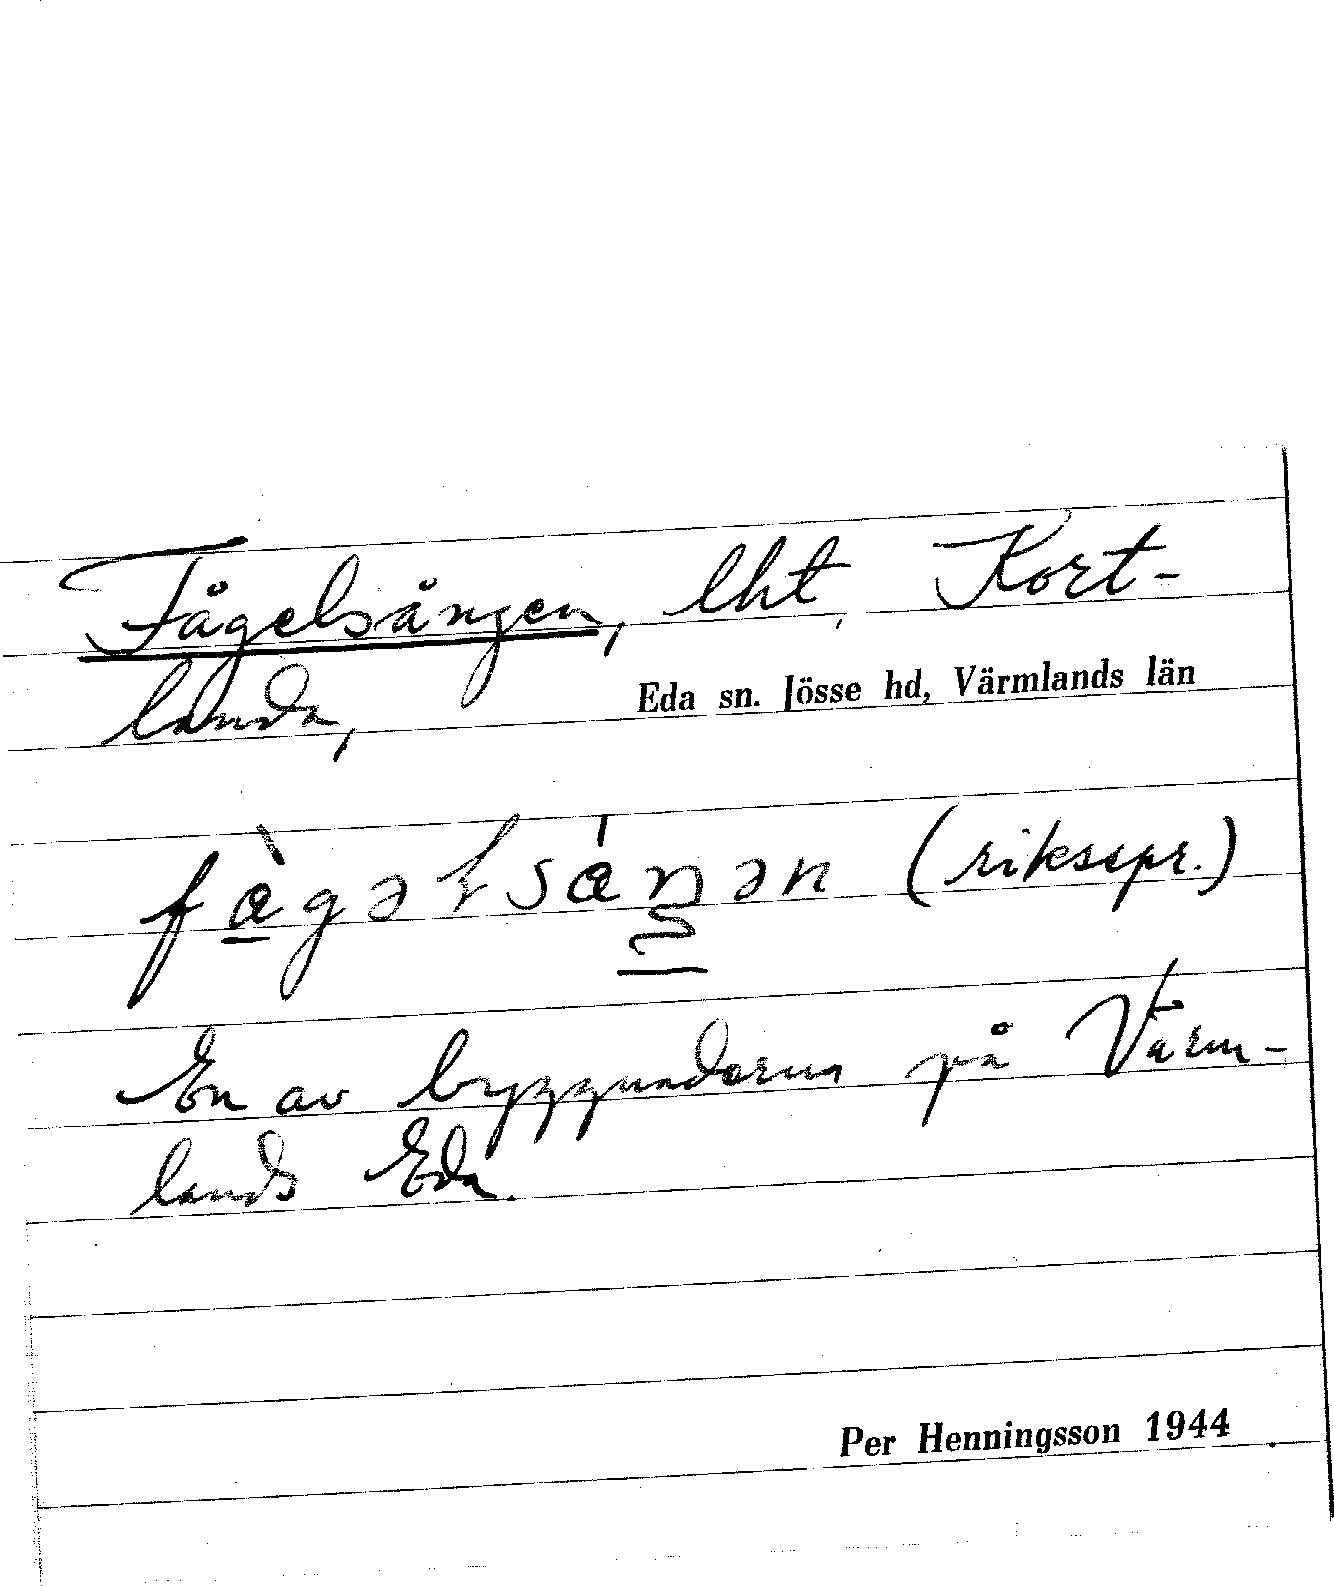 Fågelsången, lht, Kort-
landa,
Eda sn. Jösse hd, Värmlands län
fàgəɫsáŋən (rikssspr.)
En av byggnaderna på Värm-
lands Eda.
Per Henningsson 1944